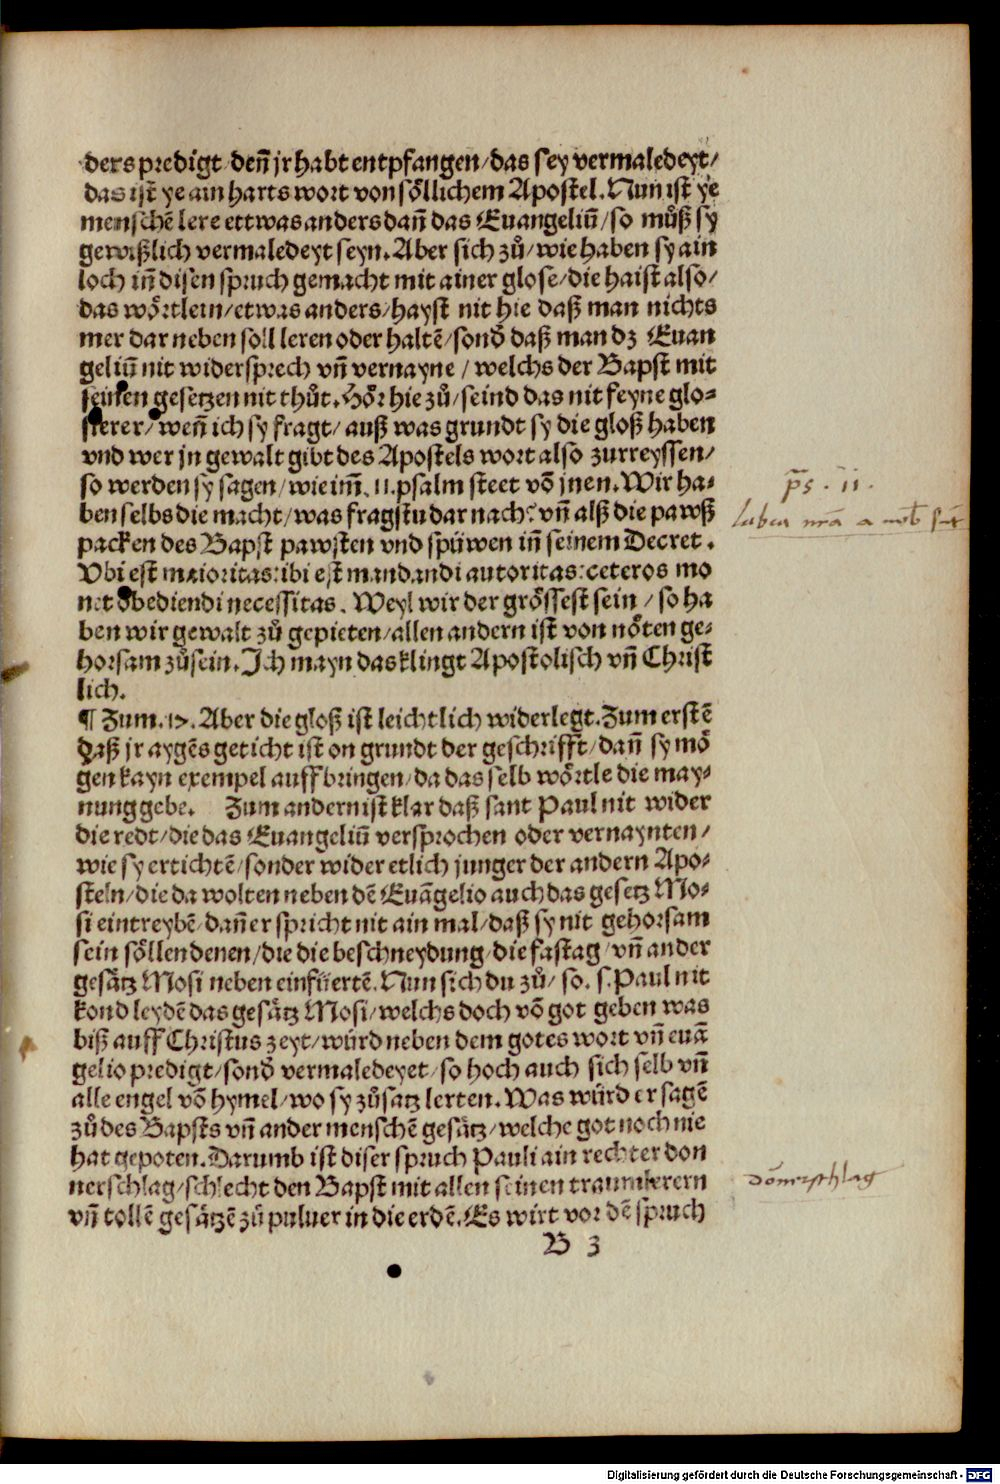 ders predigt denn̄ jr habt entpfangen/das sey vermaledeyt/
das ist ye ain harts wort von söllichem Apostel. Nun ist ye
menschē lere ettwas anders dan̄ das Euangeliū/so můß sy
gewißlich vermaledeyt seyn. Aber sich zů/wie haben sy ain
loch in̄ disen spruch gemacht mit ainer glose/die haist also/
das wörtlein/etwas anders/hayst nit hie daß man nichts
mer dar neben söll leren oder haltē/sond̄ daß man dz Euan
geliū nit widersprech vn̄ vernayne/welchs der Bapst mit
seinen gesetzen nit thůt. Hör hie zů/seind das nit feyne glo-
sierer/wen̄ ich sy fragt/auß was grundt sy die gloß haben
vnd wer jn gewalt gibt des Apostels wort also zurreyssen/
so werden sy sagen/wie im̄. 11. psalm steet vō jnen. Wir ha-
ben selbs die macht/was fragstu dar nach? vn̄ alß die pawß
packen des Bapst pawsten vnd spüwen in̄ seinem Decret.
Vbi est maioritas: ibi est mandandi autoritas: ceteros mo
net obediendi necessitas. Weyl wir der grössest sein/so ha
ben wir gewalt zů gepieten/allen andern ist von nöten ge-
horsam zů sein. Ich mayn das klingt Apostolisch vn̄ Christ
lich.
¶ Zum. 17. Aber die gloß ist leichtlich widerlegt. Zum erstē
daß jr aygēs geticht ist on grundt der geschrifft/dan̄ sy mö
gen kayn exempel auffbringen/da das selb wörtle die may-
nung gebe. Zum andern ist klar daß sant Paul nit wider
die redt/die das Euangeliū versprochen oder vernaynten/
wie sy ertichtē/sonder wider etlich junger der andern Apo-
steln/die da wolten neben dē Euāgelio auch das gesetz Mo-
si eintreybē/dan̄ er spricht nit ain mal/daß sy nit gehorsam
sein söllen denen/die die beschneydung/die fastag/vn̄ ander
gesätz Mosi neben einfüertē. Nun sich du zů/so. s. Paul nit
kond leydē das gesätz Mosi/welchs doch vō got geben was
biß auff Christus zeyt/würd neben dem gotes wort vn̄ euā
gelio predigt/sond̄ vermaledeyet/so hoch auch sich selb vn̄
alle engel vō hymel/wo sy zůsatz lerten. Was würd er sagē
zů des Bapsts vn̄ ander menschē gesätz/welche got noch nie
hat gepoten. Darumb ist diser spruch Pauli ain rechter don
nerschlag/schlecht den Bapst mit allen seinen traumlerern
vn̄ tollē gesätzē zů puluer in die erdē. Es wirt vor dē spruch
B 3
p̄s . 11 .
labia nr̄a a nob̄ sūt
dōnerschlag
Digitalisierung gefördert durch die Deutsche Forschungsgemeinschaft - DFG